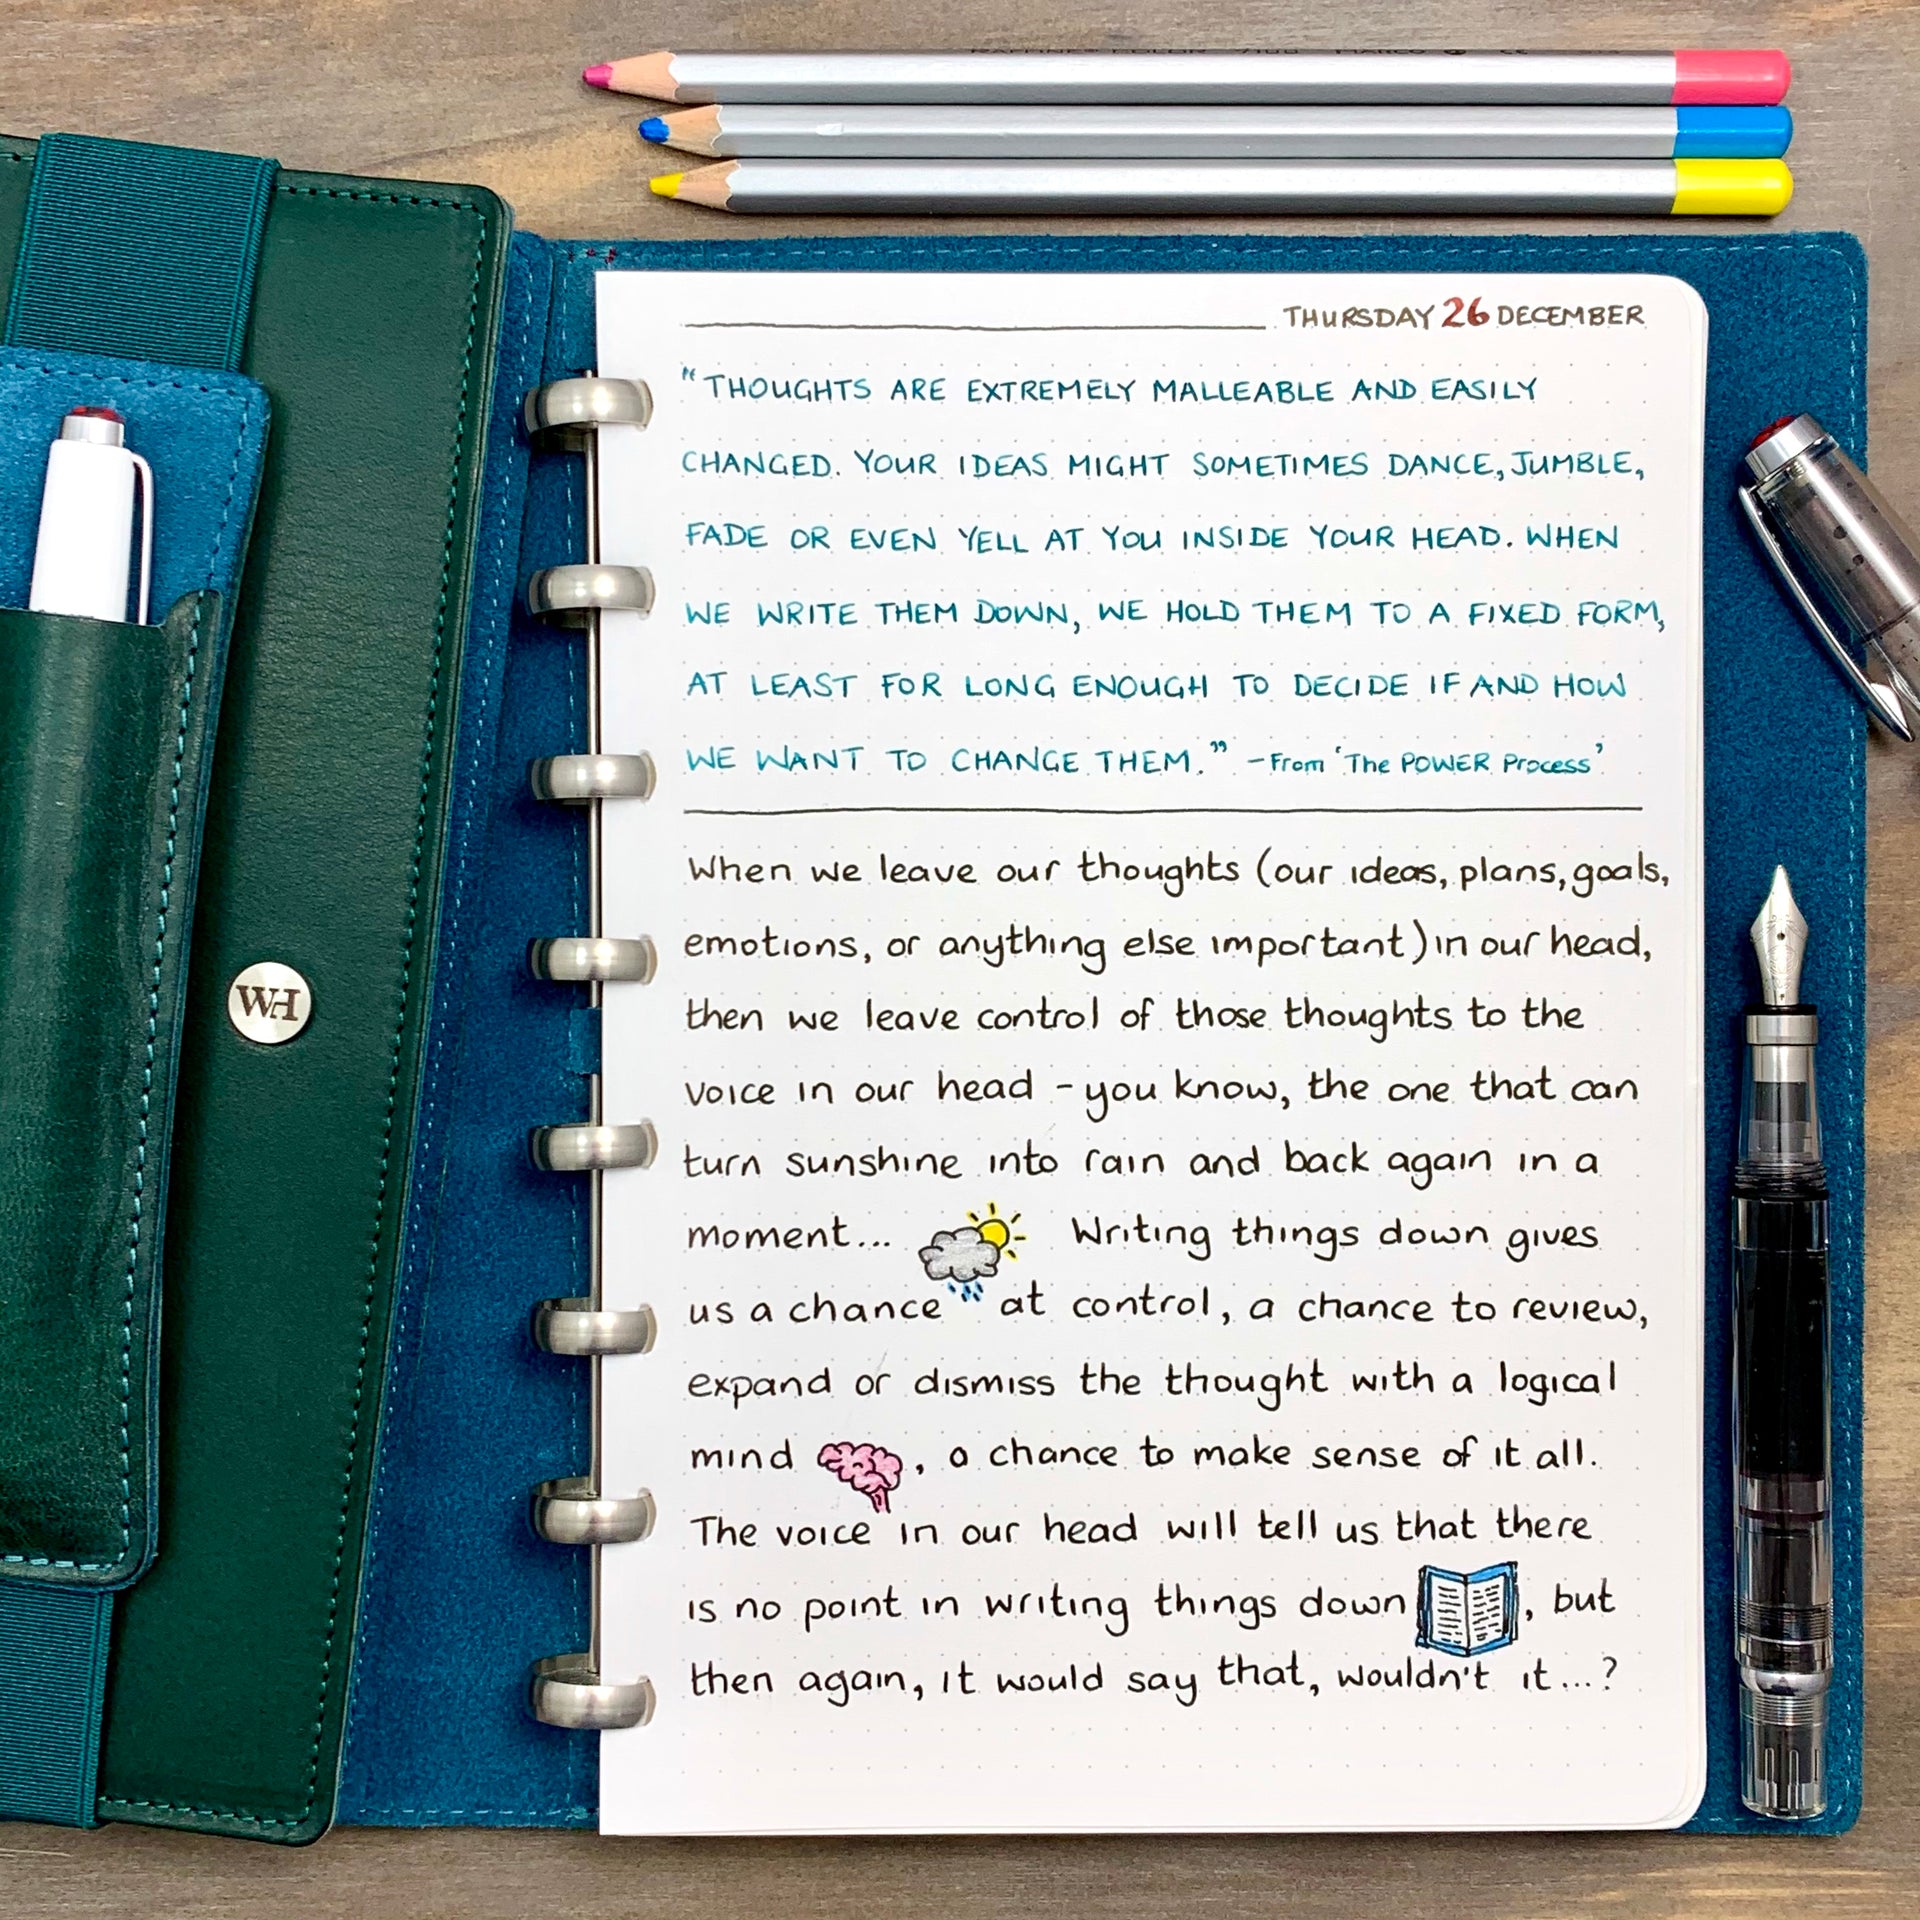 RAFFINE
MARCO
CE
THURSDAY 26 DECEMBER
"THOUGHTS ARE EXTREMELY MALLEABLE AND EASILY
CHANGED. YOUR IDEAS MIGHT SOMETIMES DANCE, JUMBLE,
FADE OR EVEN YELL AT YOU INSIDE YOUR HEAD. WHEN
WE WRITE THEM DOWN, WE HOLD THEM TO A FIXED FORM,
AT LEAST FOR LONG ENOUGH TO DECIDE IF AND HOW
WE WANT TO CHANGE THEM." - From 'The POWER Process'
When we leave our thoughts (our ideas, plans, goals,
emotions, or anything else important) in our head,
then we leave control of those thoughts to the
voice in our head - you know, the one that can
turn sunshine into rain and back again in a
moment... Writing things down gives
us a chance at control, a chance to review,
expand or dismiss the thought with a logical
mind , a chance to make sense of it all.
The voice in our head will tell us that there
is no point in writing things down , but
then again, it would say that, wouldn't it...?
WH